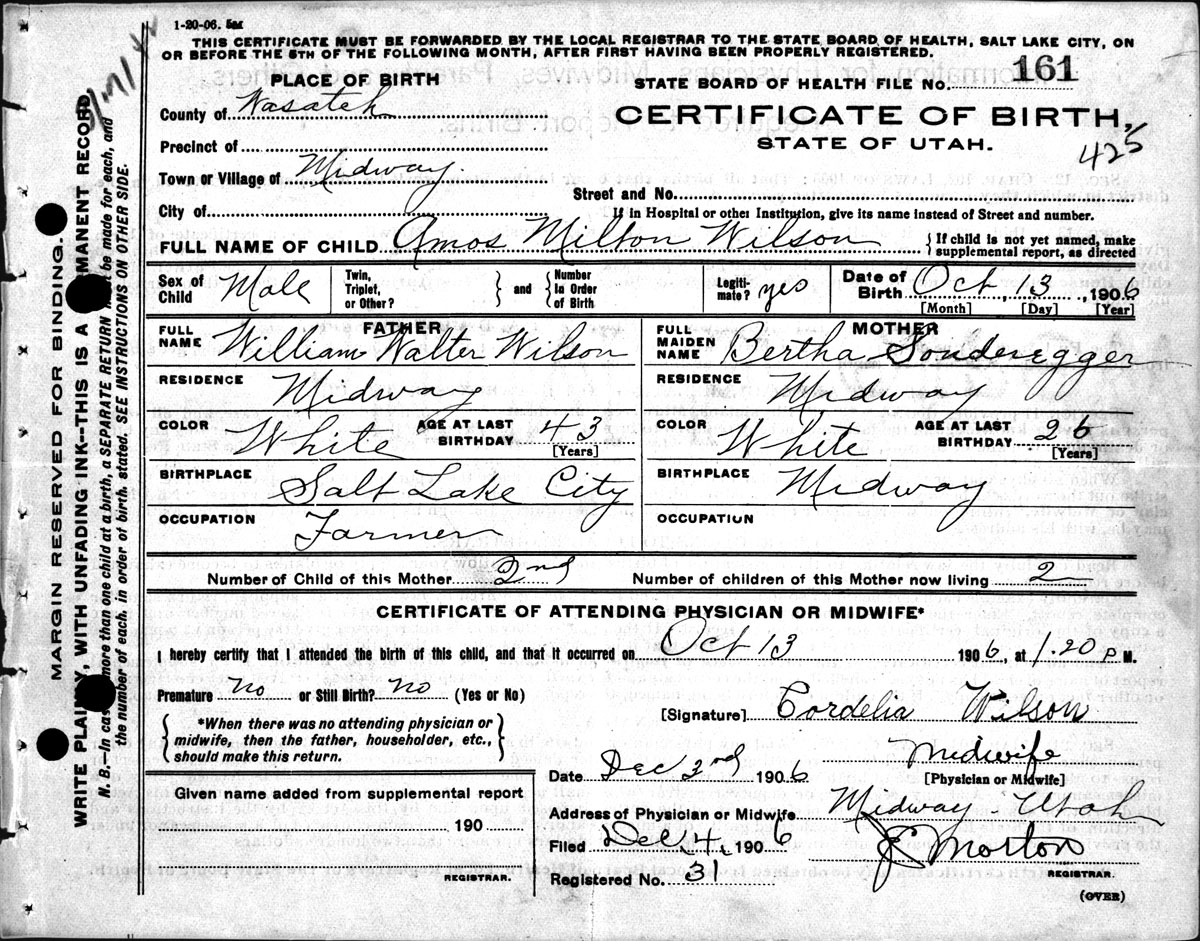 1-20-06. 5M
THIS CERTIFICATE MUST BE FORWARDED BY THE LOCAL REGISTRAR TO THE STATE BOARD OF HEALTH, SALT LAKE CITY, ON
OR BEFORE THE 5TH OF THE FOLLOWING MONTH, AFTER FIRST HAVING BEEN PROPERLY REGISTERED.
PLACE OF BIRTH
County of Wasatch
Precinct of
Town or Village of Midway
City of
STATE BOARD OF HEALTH FILE NO. 161
CERTIFICATE OF BIRTH,
STATE OF UTAH.
425
Street and No.
If in Hospital or other Institution, give its name instead of Street and number.
FULL NAME OF CHILD Amos Milton Wilson { If child is not yet named, make supplemental report, as directed
Sex of Child Male Twin, Triplet, or Other? } and { Number In Order of Birth Legiti-mate? yes Date of Birth Oct, 13, 1906
[Month] [Day] [Year]
FATHER
FULL NAME William Walter Wilson
RESIDENCE Midway
COLOR White AGE AT LAST BIRTHDAY 43 [Years]
BIRTHPLACE Salt Lake City
OCCUPATION Farmer
MOTHER
FULL MAIDEN NAME Bertha Sonderegger
RESIDENCE Midway
COLOR White AGE AT LAST BIRTHDAY 26 [Years]
BIRTHPLACE Midway
OCCUPATION
Number of Child of this Mother 2nd Number of children of this Mother now living 2
CERTIFICATE OF ATTENDING PHYSICIAN OR MIDWIFE*
I hereby certify that I attended the birth of this child, and that it occurred on Oct 13 1906, at 1.20 P M.
Premature No or Still Birth? No (Yes or No)
*When there was no attending physician or
midwife, then the father, householder, etc.,
should make this return.
[Signature] Cordelia Wilson
Midwife
[Physician or Midwife]
Date Dec 2nd 1906
Address of Physician or Midwife Midway Utah
Filed Dec. 4, 1906 J C Morton
REGISTRAR.
Registered No. 31
(OVER)
Given name added from supplemental report
190
REGISTRAR.
MARGIN RESERVED FOR BINDING.
WRITE PLAINLY, WITH UNFADING INK--THIS IS A PERMANENT RECORD
N. B.—In case more than one child at a birth, a SEPARATE RETURN must be made for each, and
the number of each, in order of birth, stated. SEE INSTRUCTIONS ON OTHER SIDE.